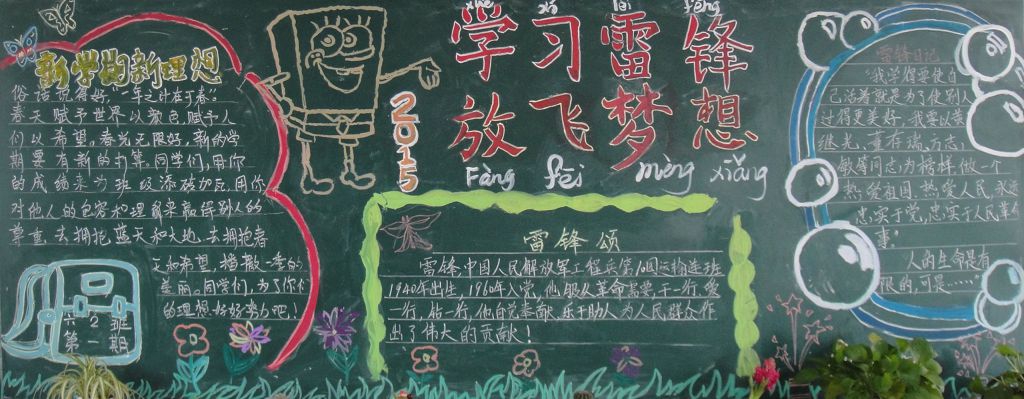 新学期新理想
俗话说得好,"一年之计在于春"
春天赋予世界以颜色,赋予人
们以希望。春光无限好,新的学
期要有新的打算。同学们,用你
的成绩来为班级添砖加瓦,用你
对他人的包容和理解来赢得别人的
尊重,去拥抱蓝天和大地,去拥抱春
天和希望,播撒一季的
美丽。同学们,为了你们
的理想好好努力吧!
六2班
第一期
2015
xué xí léi fēng
学习雷锋
放飞梦想
Fàng fēi mèng xiǎng
雷锋颂
雷锋,中国人民解放军工程兵第10团运输连班
1940年出生,1960年入党。他服从革命需要,干一行,爱
一行,钻一行,他自觉奉献,乐于助人为人民群众作
出了伟大的贡献!
雷锋日记
"我学习要使自
己活着就是为了使别人
过得更美好。我要以黄
继光、董存瑞、方志
敏等同志为榜样,做一个
热爱祖国,热爱人民,永远
忠实于党,忠实于人民革命
事"
人的生命是有
限的,可是……